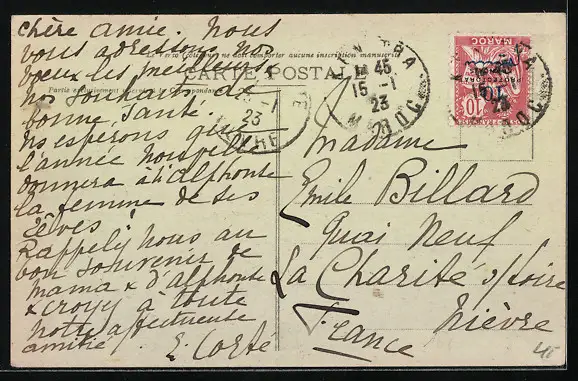 Chère amie. Nous
vous adressons nos
vœux les meilleurs
nos souhaits de
bonne santé
Ns esperons que
l'année nouvelle
donnera à d'Alphonse
la femme de ses
rêves!
Rappelez nous au
bon souvenir de
mama & d'alphonse
& croyez à toute
notre affectueuse
amitié
E. Corté
Le Verso est
ne doit comporter aucune inscription manuscrite
CARTE POSTALE
Partie exclusivement réservée à la correspondance
15 -1
23
MAROC
MAROC
10
PROTECTORAT
Madame
Emile Billard
Quai Neuf
La Charité s/Loire
Nièvre
France
45